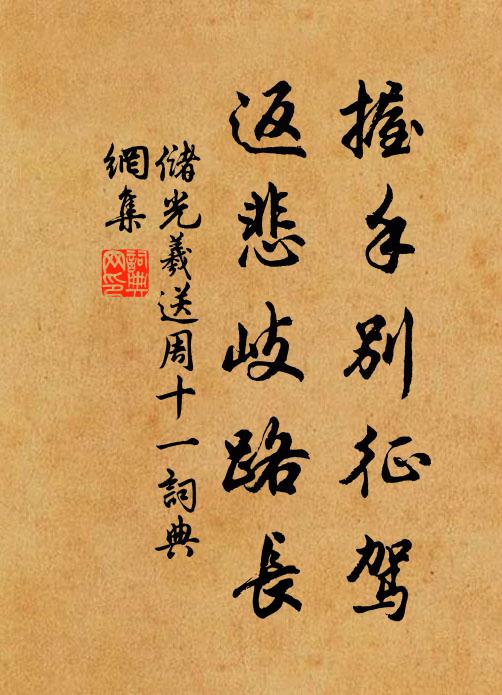 握手別征駕
返悲岐路長
儲光羲送周十一詞典
網集
詞典
网印